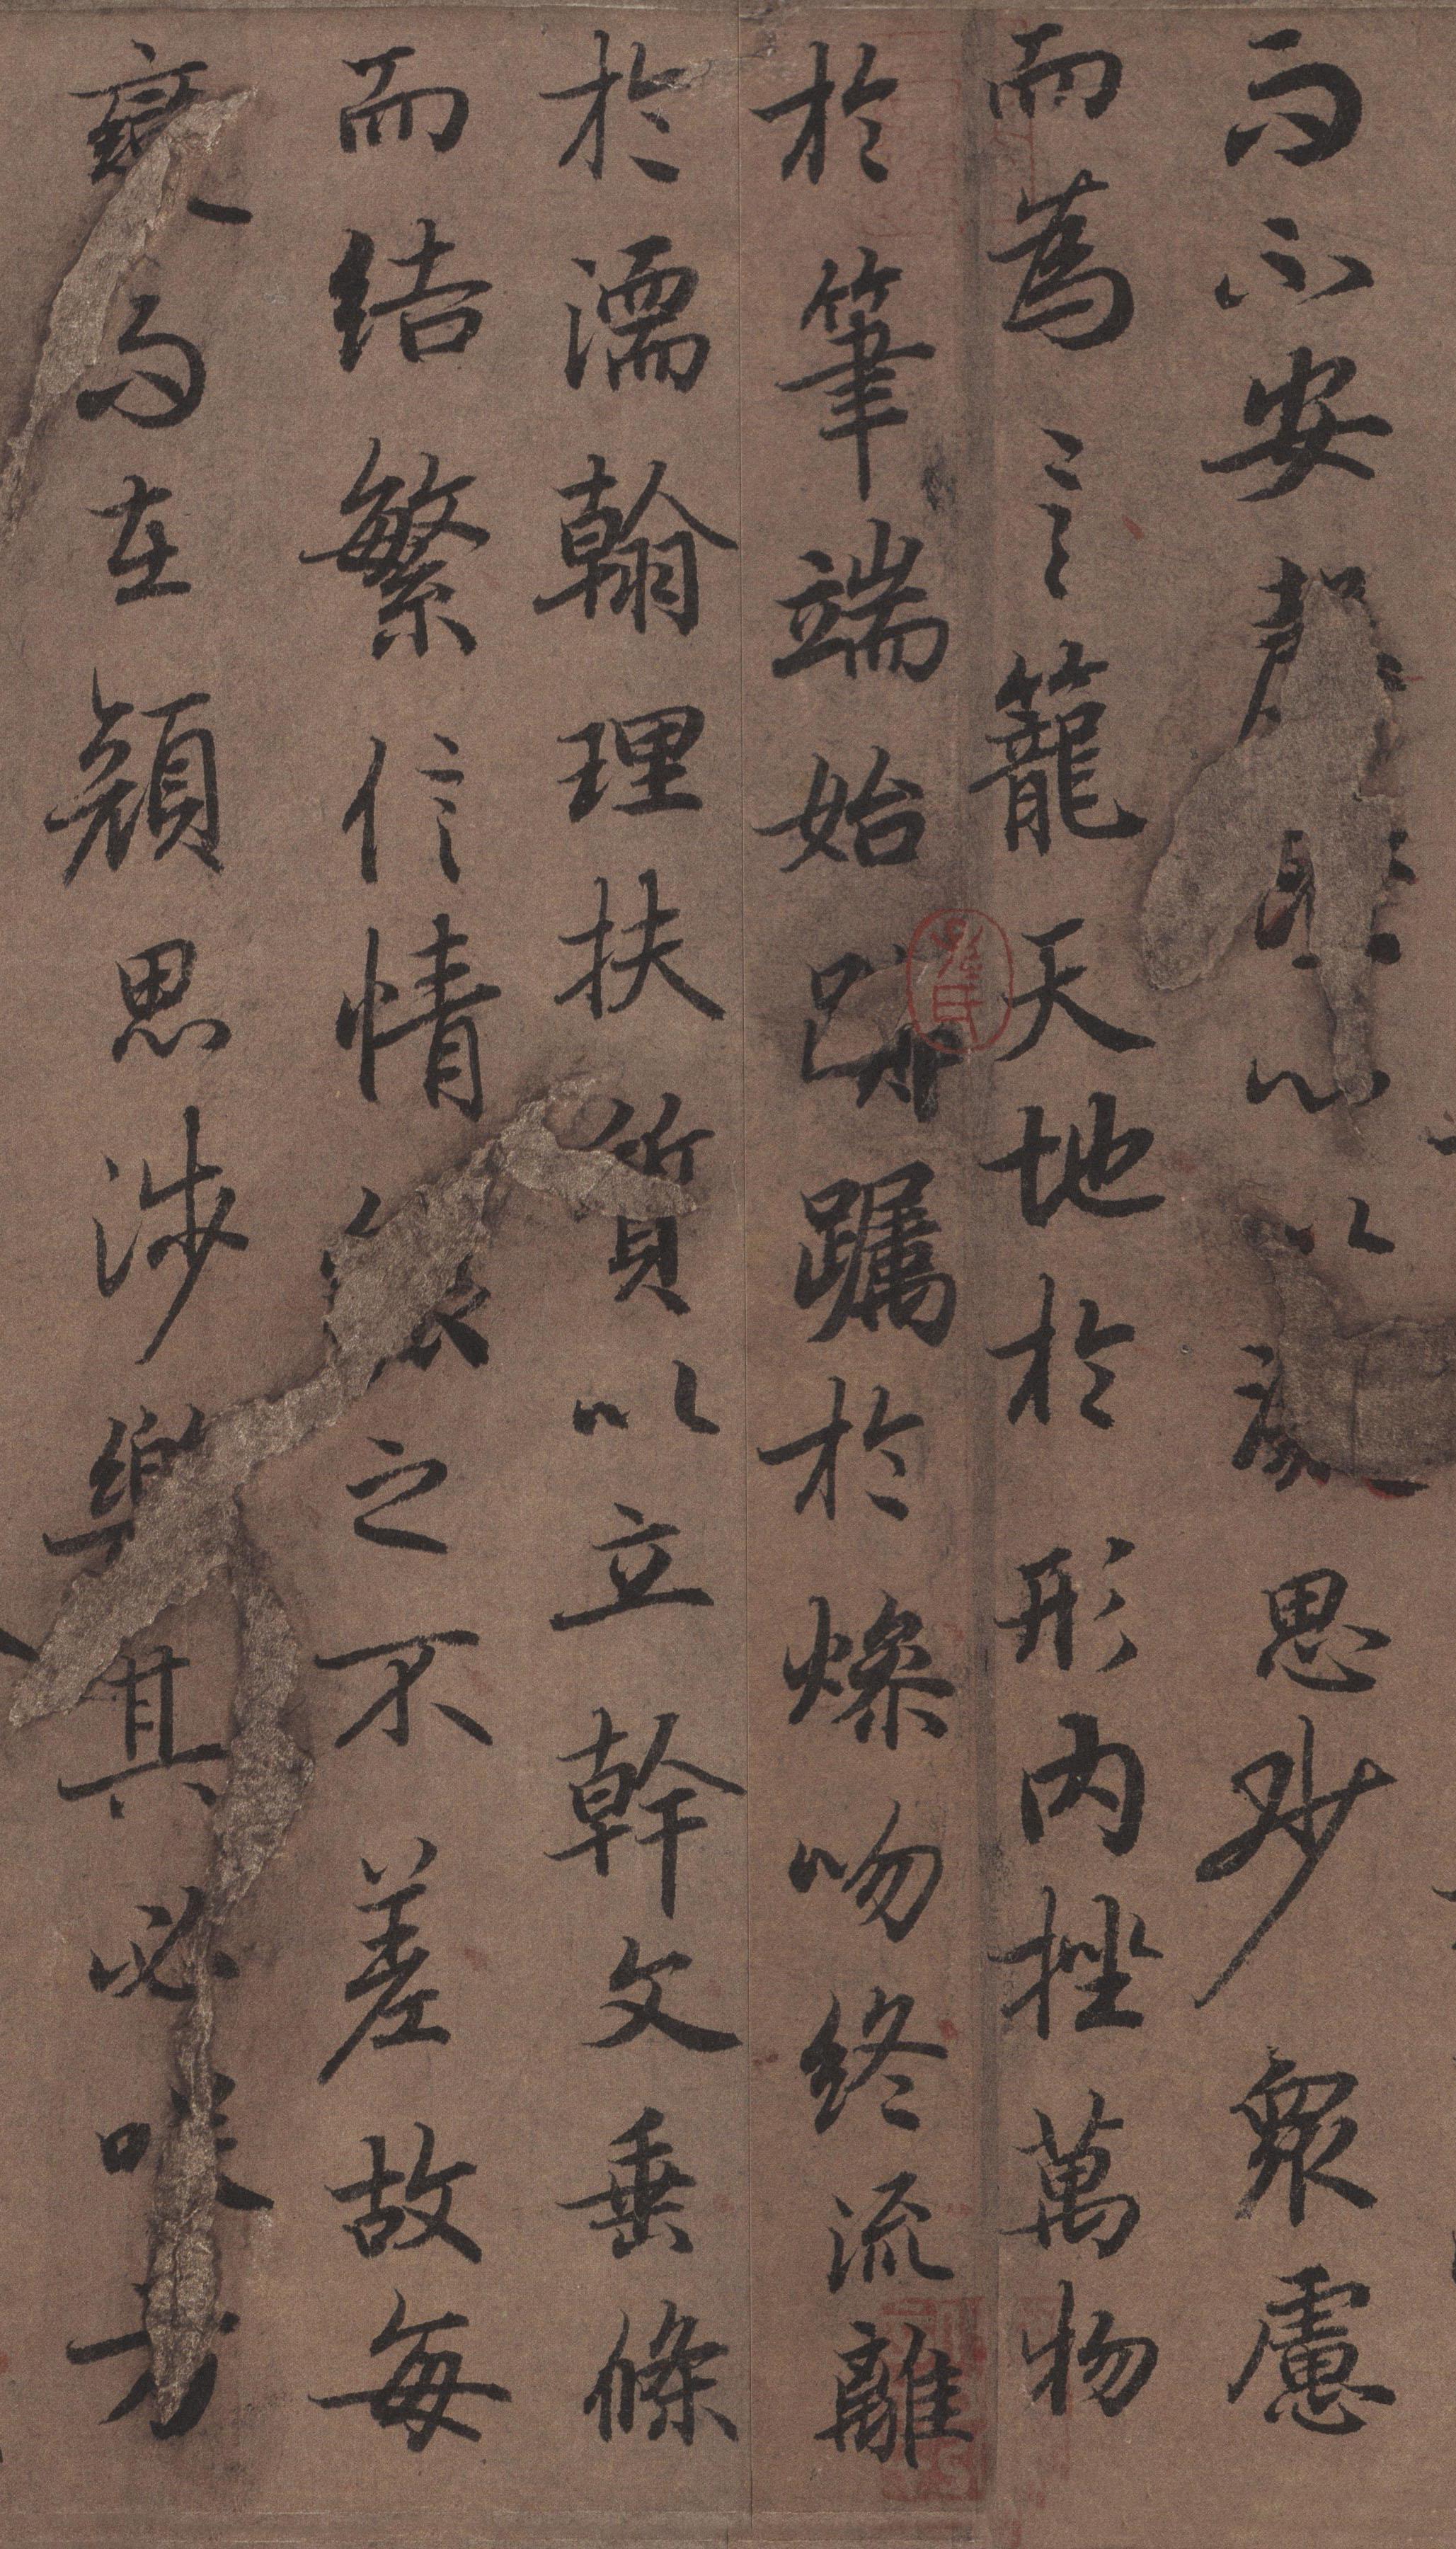 而不安罄澄心以凝思眇眾慮
而為言籠天地於形內挫萬物
於筆端始躑躅於燥吻終流離
於濡翰理扶質以立幹文垂條
而結繁信情之不差故每
變而在顏思涉樂其必咲方